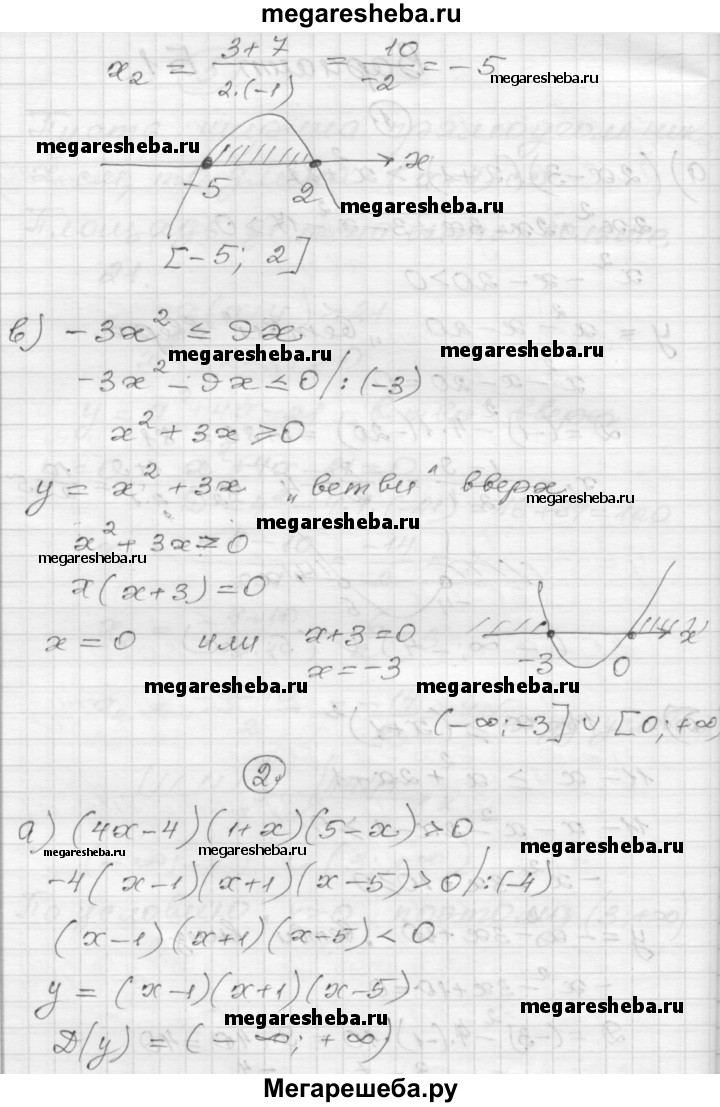 megaresheba.ru
x₂ = (3+7)/(2·(-1)) = 10/-2 = -5
megaresheba.ru
megaresheba.ru
x
-5 2
megaresheba.ru
[-5; 2]
в) -3x² ≤ 9x
megaresheba.ru megaresheba.ru
-3x² - 9x ≤ 0 /:(-3)
x² + 3x ≥ 0
y = x² + 3x „ветви" вверх
megaresheba.ru
megaresheba.ru
x² + 3x = 0
megaresheba.ru
x(x+3) = 0
x = 0 или x+3 = 0
x = -3
-3 0 x
megaresheba.ru megaresheba.ru
(-∞; -3] ∪ [0; +∞)
2.
а) (4x-4)(1+x)(5-x) > 0
megaresheba.ru megaresheba.ru megaresheba.ru
-4(x-1)(x+1)(x-5) > 0 /:(-4)
(x-1)(x+1)(x-5) < 0
y = (x-1)(x+1)(x-5)
megaresheba.ru megaresheba.ru
D(y) = (-∞; +∞)
Мегарешеба.ру